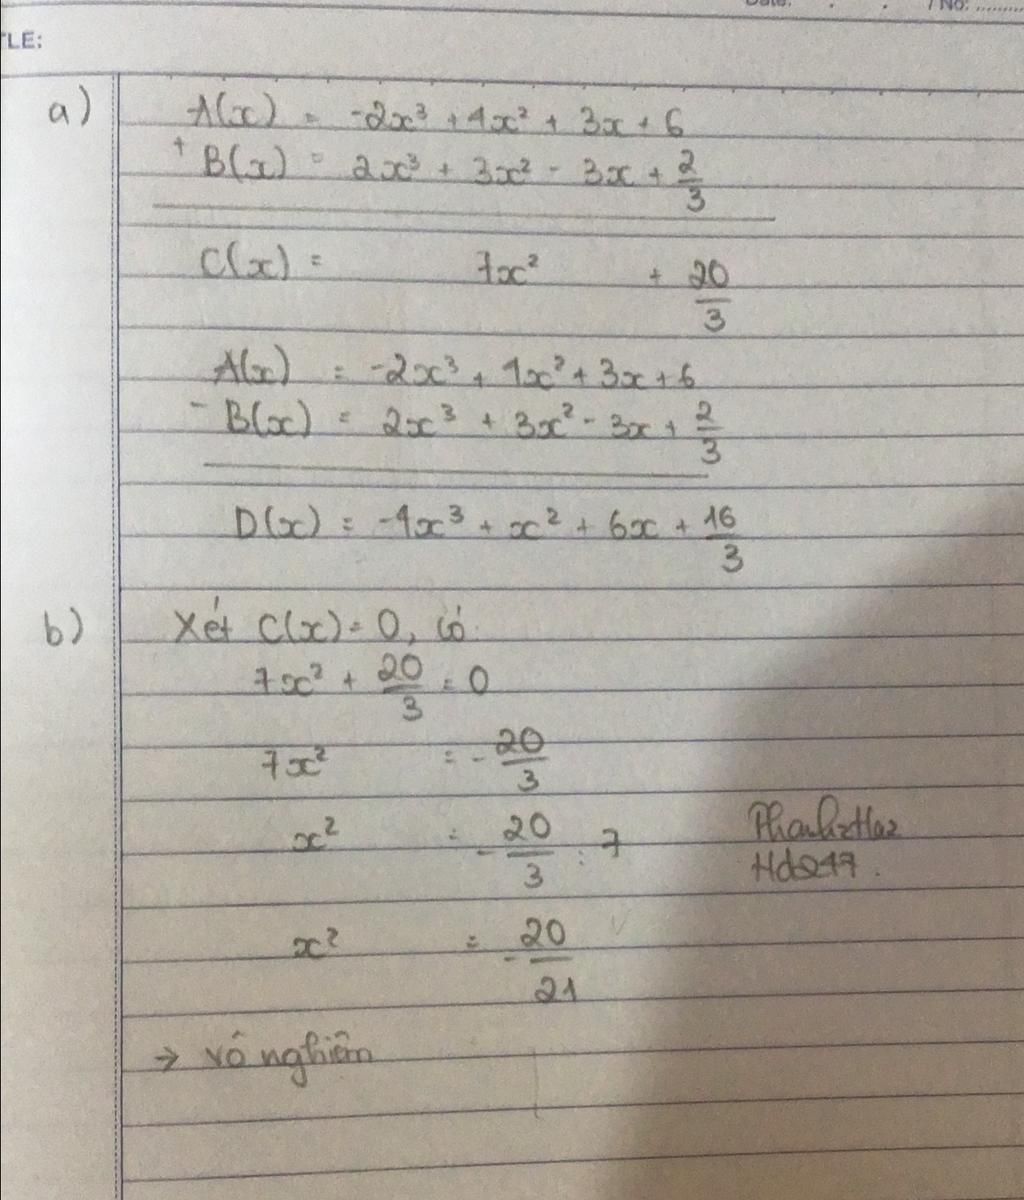 / No: .........
TLE:
a) A(x) = -2x³ + 4x² + 3x + 6
+ B(x) = 2x³ + 3x² - 3x + 2/3
C(x) = 7x² + 20/3
A(x) = -2x³ + 4x² + 3x + 6
- B(x) = 2x³ + 3x² - 3x + 2/3
D(x) = -4x³ + x² + 6x + 16/3
b) Xét C(x) = 0, có
7x² + 20/3 = 0
7x² = -20/3
x² = -20/3 : 7
Hdz47.
x² = -20/21
→ vô nghiệm